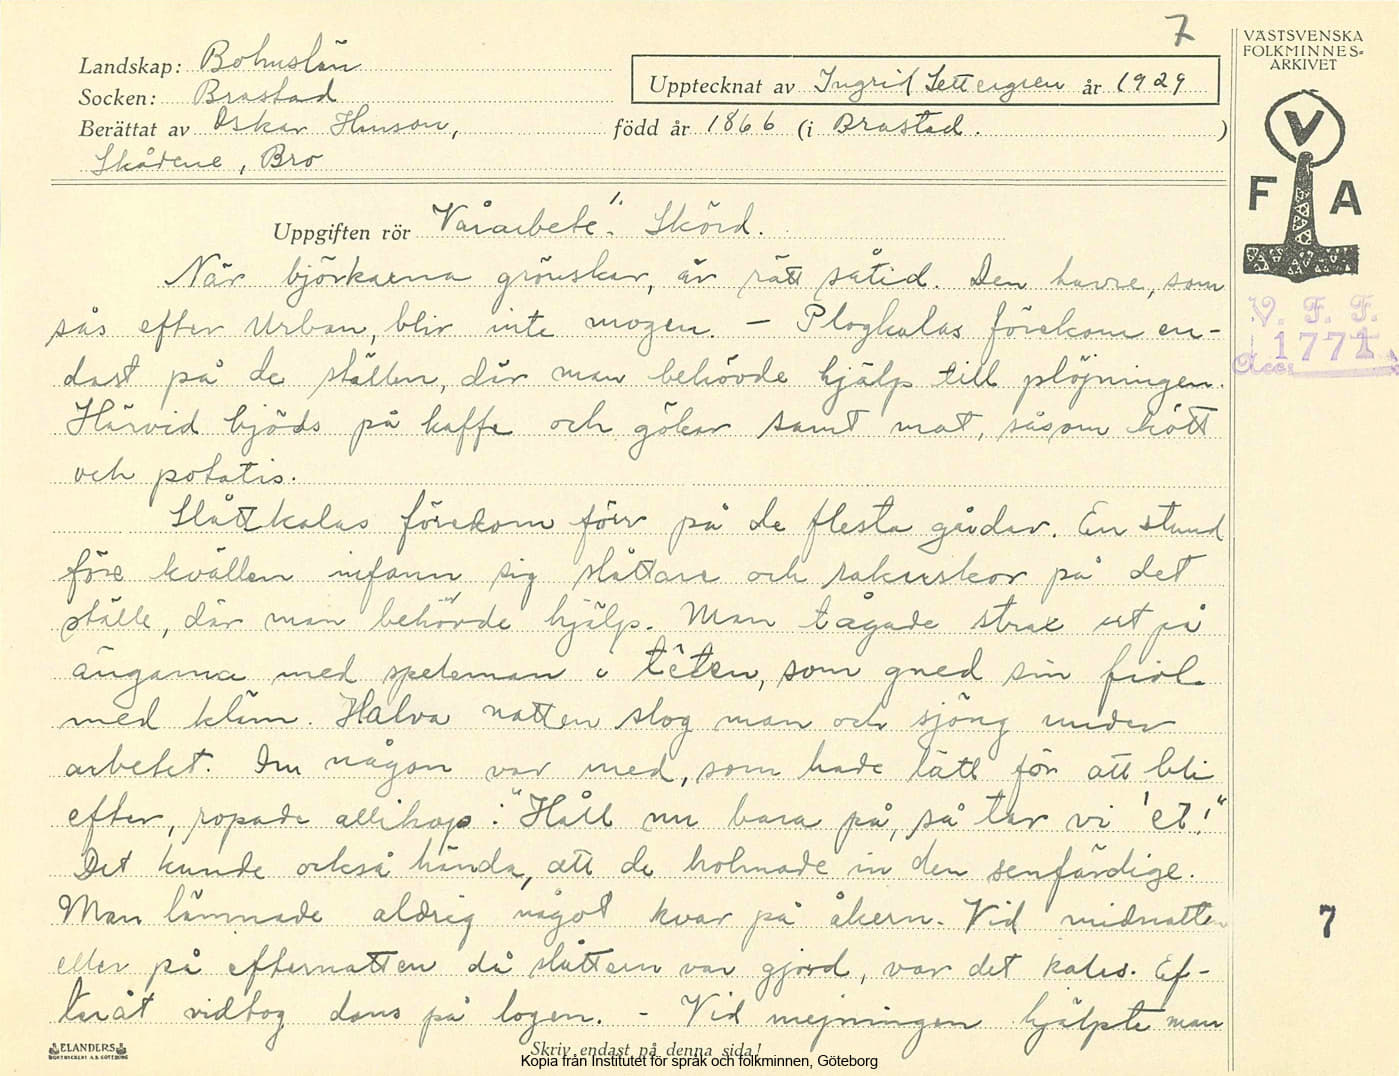 7
VÄSTSVENSKA
FOLKMINNES=
ARKIVET
Landskap: Bohuslän
Socken: Brastad
Upptecknat av Ingrid Settergren år 1929
Berättat av Oskar Hinson, född år 1866 (i Brastad. )
Skådene, Bro
V
F A
V. F. F.
1771
Acc.
Uppgiften rör Vårarbete. Skörd.
När björkarna grönskar, är rätt såtid. Den havre, som
sås efter Urban, blir inte mogen. – Plogkalas förekom en-
dast på de ställen, där man behövde hjälp till plöjningen.
Härvid bjöds på kaffe och gökar samt mat, såsom kött
och potatis.
Slåttkalas förekom förr på de flesta gårdar. En stund
före kvällen infann sig slåttare och rakerskor på det
ställe, där man behövde hjälp. Man tågade strax ut på
ängarna med speleman i têten, som gned sin fiol
med kläm. Halva natten slog man och sjöng under
arbetet. Om någon var med, som hade lätt för att bli
efter, ropade allihop: "Håll nu bara på, så tar vi 'et!"
Det kunde också hända, att de holmade in den senfärdige.
Man lämnade aldrig något kvar på åkern. Vid midnatten
eller på efternatten då slåttern var gjord, var det kalas. Ef-
teråt vidtog dans på logen. – Vid mejningen hjälpte man
7
ELANDERS
BOKTRYCKERI A.B. GÖTEBORG
Skriv endast på denna sida!
Kopia från Institutet för språk och folkminnen, Göteborg